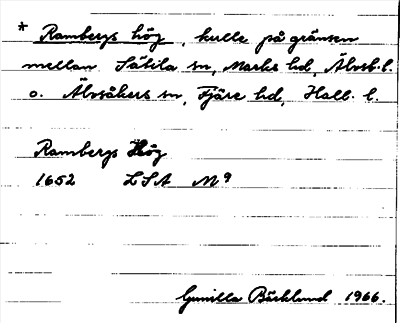 * Rambergs hög, kulle på gränsen
mellan Sätila sn, Marks hd, Älvsb. l.
o. Älvsåkers sn, Fjäre hd, Hall. l.
Rambergs Hög
1652 LSA M 9
Gunilla Bäcklund 1966.